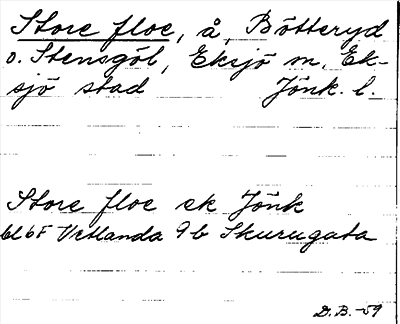 Store floe, å, Bötteryd
o. Stensgöl, Eksjö m, Ek-
sjö stad Jönk. l.
Store floe ek Jönk
bl 6F Vetlanda 9b Skurugata
D.B.-59